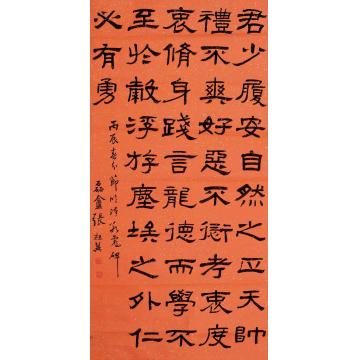 君少履安自然之正天帥
禮不爽好惡不愆考衷度
衷脩身踐言龍德而學不
至於穀浮游塵埃之外仁
必有勇
丙辰春分節臨漢孔彪碑
磊盦張祖翼